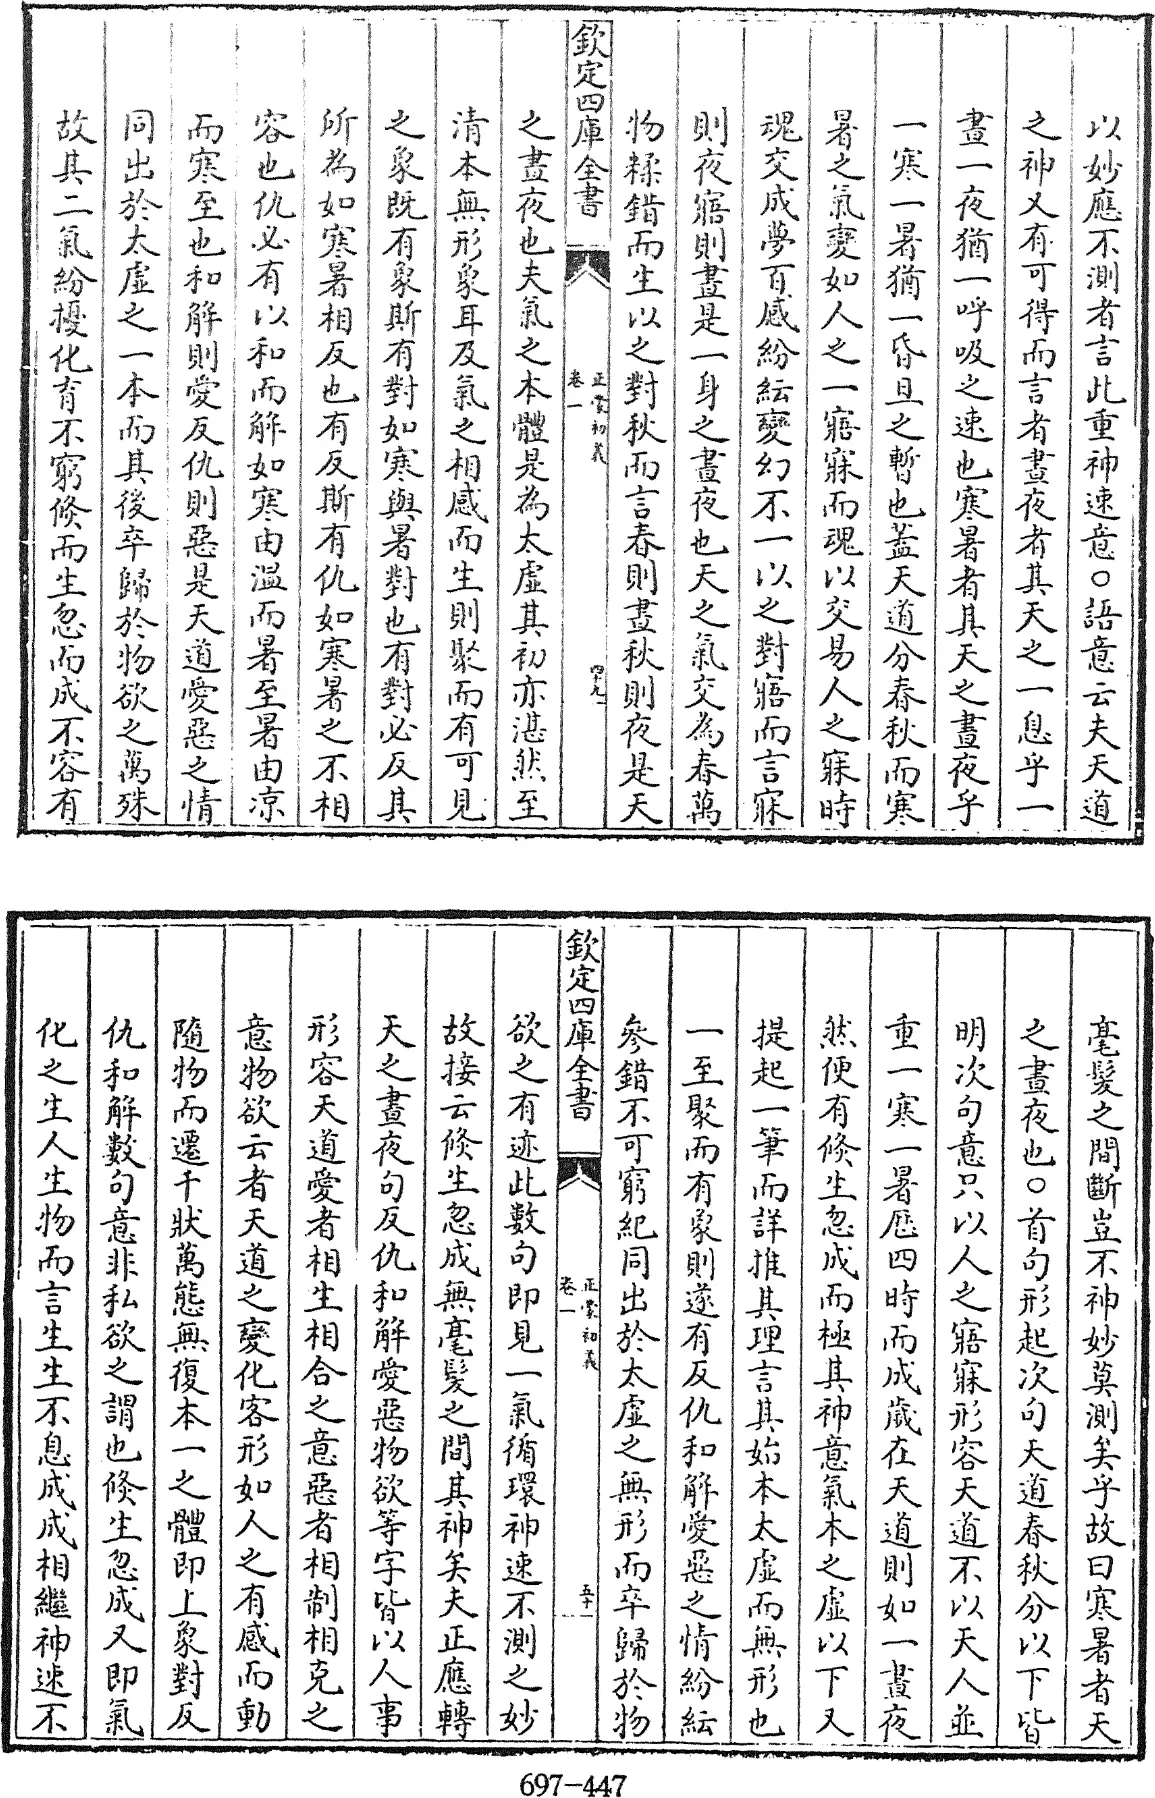 以妙應不測者言此重神速意○語意云夫天道
之神又有可得而言者晝夜者其天之一息乎一
晝一夜猶一呼吸之速也寒暑者其天之晝夜乎
一寒一暑猶一昏旦之暫也蓋天道分春秋而寒
暑之氣變如人之一寤寐而魂以交易人之寐時
魂交成夢百感紛紜變幻不一以之對寤而言寐
則夜寤則晝是一身之晝夜也天之氣交為春萬
物糅錯而生以之對秋而言春則晝秋則夜是天
欽定四庫全書
正蒙初義
卷一
四十九
之晝夜也夫氣之本體是為太虛其初亦湛然至
清本無形象耳及氣之相感而生則聚而有可見
之象既有象斯有對如寒與暑對也有對必反其
所為如寒暑相反也有反斯有仇如寒暑之不相
容也仇必有以和而解如寒由溫而暑至暑由凉
而寒至也和解則愛反仇則惡是天道愛惡之情
同出於太虛之一本而其後卒歸於物欲之萬殊
故其二氣紛擾化育不窮倐而生忽而成不容有
毫髮之間斷豈不神妙莫測矣乎故曰寒暑者天
之晝夜也○首句形起次句天道春秋分以下皆
明次句意只以人之寤寐形容天道不以天人並
重一寒一暑厯四時而成歲在天道則如一晝夜
然便有倐生忽成而極其神意氣本之虛以下又
提起一筆而詳推其理言其始本太虛而無形也
一至聚而有象則遂有反仇和解愛惡之情紛紜
參錯不可窮紀同出於太虛之無形而卒歸於物
欽定四庫全書
正蒙初義
卷一
五十
欲之有迹此數句即見一氣循環神速不測之妙
故接云倐生忽成無毫髮之間其神矣夫正應轉
天之晝夜句反仇和解愛惡物欲等字皆以人事
形容天道愛者相生相合之意惡者相制相克之
意物欲云者天道之變化客形如人之有感而動
隨物而遷千狀萬態無復本一之體即上象對反
仇和解數句意非私欲之謂也倐生忽成又即氣
化之生人生物而言生生不息成成相繼神速不
697-447